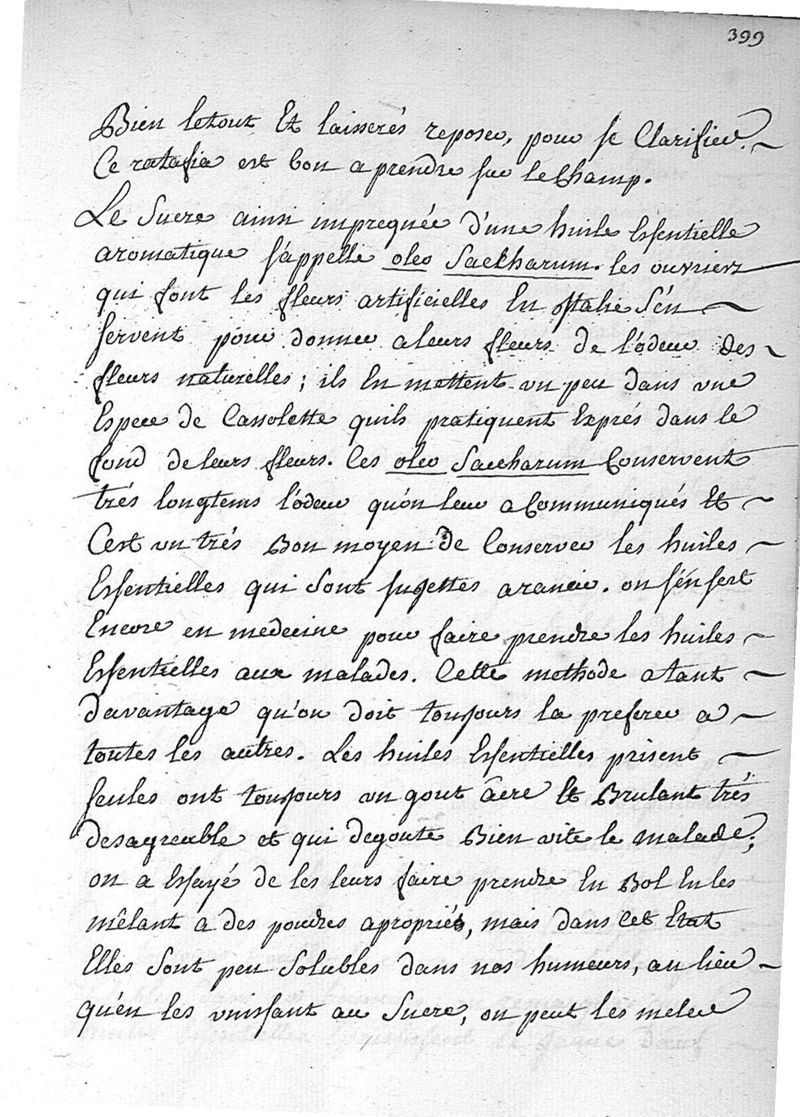 399
Bien letout Et laisserés reposer, pour se Clarifier.
Ce ratafia est bon a prendre sur le Champ.
Le Sucre ainsi impregnée d'une huile Essentielle
aromatique s'appelle oleo Saccharum. les ouvriers
qui font les fleurs artificielles En Italie S'en
servent pour donner a leurs fleurs de l'odeur des
fleurs naturelles; ils En mettent un peu dans une
Espece de Cassolette quils pratiquent Exprés dans le
fond de leurs fleurs. Ces oleo Saccharum Conservent
trés longtems l'odeur qu'on leur a Communiqués Et
C'est un trés Bon moyen de Conserver les huiles
Essentielles qui Sont sujettes a rancir. on S'en sert
Encore en medecine pour faire prendre les huiles
Essentielles aux malades. Cette methode a tant
davantage qu'on doit toujours la preferer a
toutes les autres. Les huiles Essentielles prisent
seules ont toujours un gout âcre Et Brulant trés
desagreable et qui degoute Bien vite le malade;
on a Essayé de les leurs faire prendre En Bol En les
mêlant a des poudres apropriés, mais dans cet Etat
Elles Sont peu Solubles dans nos humeurs, au lieu
qu'en les unissant au Sucre, on peut les meler